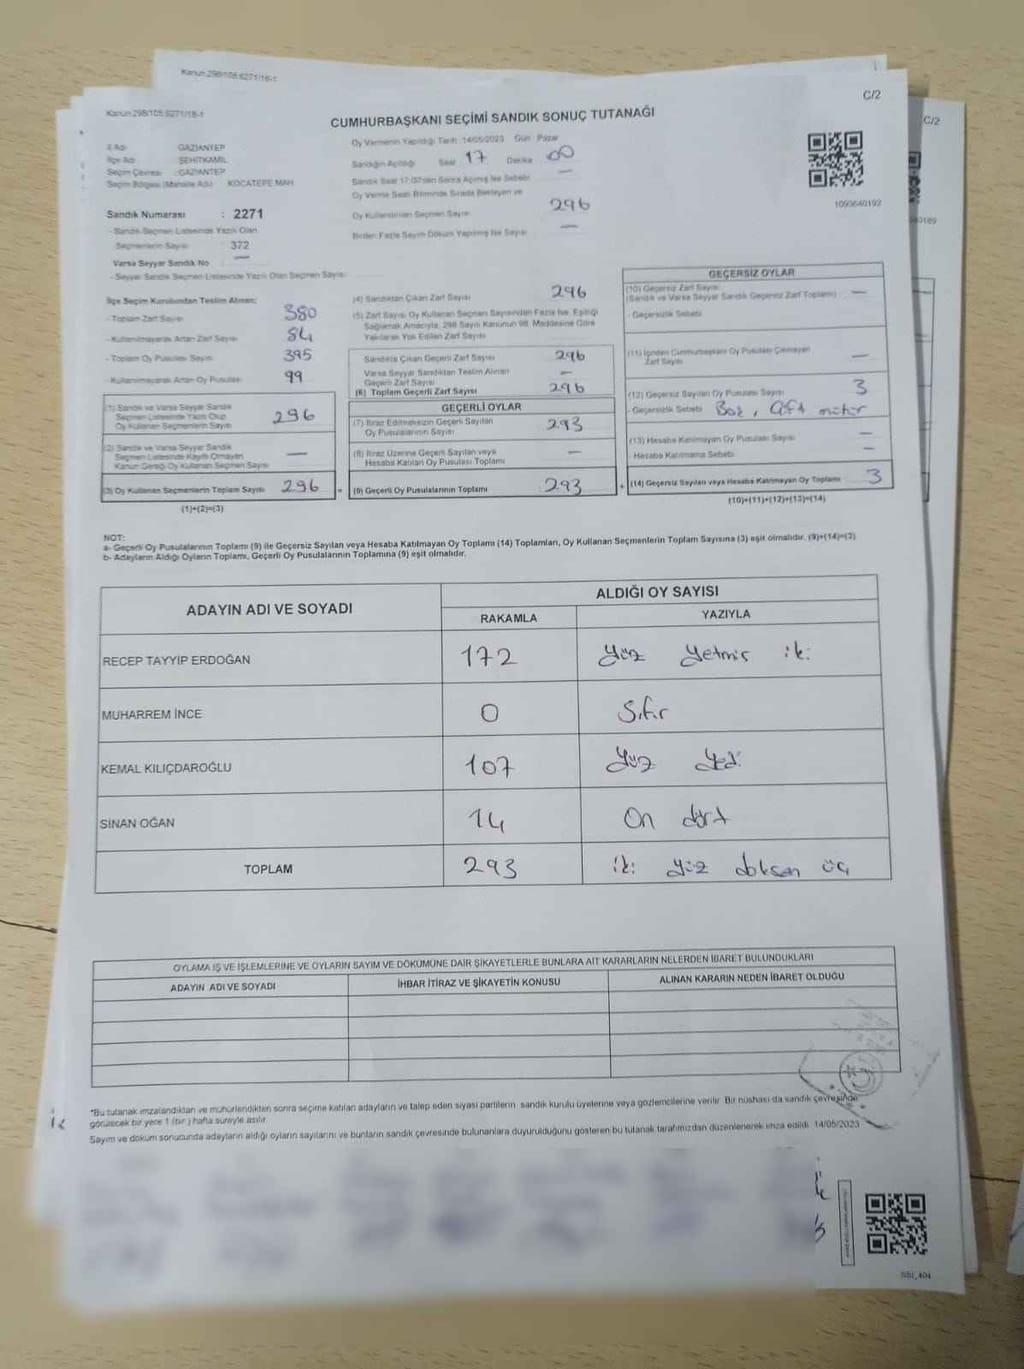 Kanun:298/105:6271/18-1
Kanun:298/105:6271/18-1
C/2
C/2
CUMHURBAŞKANI SEÇİMİ SANDIK SONUÇ TUTANAĞI
İl Adı : GAZİANTEP
İlçe Adı : ŞEHİTKAMİL
Seçim Çevresi : GAZİANTEP
Seçim Bölgesi (Mahalle Adı) : KOCATEPE MAH
Sandık Numarası : 2271
- Sandık Seçmen Listesinde Yazılı Olan
Seçmenlerin Sayısı 372
Varsa Seyyar Sandık No —
- Seyyar Sandık Seçmen Listesinde Yazılı Olan Seçmen Sayısı:
Oy Vermenin Yapıldığı Tarih :14/05/2023 Gün : Pazar
Sandığın Açıldığı Saat 17 Dakika 00
Sandık Saat 17:00'den Sonra Açılmış İse Sebebi —
Oy Verme Saati Bitiminde Sırada Bekleyen ve
Oy Kullandırılan Seçmen Sayısı 296
Birden Fazla Sayım Döküm Yapılmış İse Sayısı —
1093640192
İlçe Seçim Kurulundan Teslim Alınan;
- Toplam Zarf Sayısı 380
- Kullanılmayarak Artan Zarf Sayısı 84
- Toplam Oy Pusulası Sayısı 395
- Kullanılmayarak Artan Oy Pusulası 99
(1) Sandık ve Varsa Seyyar Sandık
Seçmen Listesinde Yazılı Olup
Oy Kullanan Seçmenlerin Sayısı 296
(2) Sandık ve Varsa Seyyar Sandık
Seçmen Listesinde Kayıtlı Olmayan
Kanun Gereği Oy Kullanan Seçmen Sayısı —
(3) Oy Kullanan Seçmenlerin Toplam Sayısı 296
(1)+(2)=(3)
(4) Sandıktan Çıkan Zarf Sayısı 296
(5) Zarf Sayısı Oy Kullanan Seçmen Sayısından Fazla İse, Eşitliği
Sağlamak Amacıyla, 298 Sayılı Kanunun 98. Maddesine Göre
Yakılarak Yok Edilen Zarf Sayısı
Sandıkta Çıkan Geçerli Zarf Sayısı 296
Varsa Seyyar Sandıktan Teslim Alınan
Geçerli Zarf Sayısı —
(6) Toplam Geçerli Zarf Sayısı 296
GEÇERLİ OYLAR
(7) İtiraz Edilmeksizin Geçerli Sayılan
Oy Pusulalarının Sayısı 293
(8) İtiraz Üzerine Geçerli Sayılan veya
Hesaba Katılan Oy Pusulası Toplamı —
= (9) Geçerli Oy Pusulalarının Toplamı 293
GEÇERSİZ OYLAR
(10) Geçersiz Zarf Sayısı
(Sandık ve Varsa Seyyar Sandık Geçersiz Zarf Toplamı) —
- Geçersizlik Sebebi
(11) İçinden Cumhurbaşkanı Oy Pusulası Çıkmayan
Zarf Sayısı —
(12) Geçersiz Sayılan Oy Pusulası Sayısı 3
- Geçersizlik Sebebi Boş, Çift mühür
(13) Hesaba Katılmayan Oy Pusulası Sayısı —
- Hesaba Katılmama Sebebi —
+ (14) Geçersiz Sayılan veya Hesaba Katılmayan Oy Toplamı 3
(10)+(11)+(12)+(13)=(14)
NOT:
a- Geçerli Oy Pusulalarının Toplamı (9) ile Geçersiz Sayılan veya Hesaba Katılmayan Oy Toplamı (14) Toplamları, Oy Kullanan Seçmenlerin Toplam Sayısına (3) eşit olmalıdır. (9)+(14)=(3)
b- Adayların Aldığı Oyların Toplamı, Geçerli Oy Pusulalarının Toplamına (9) eşit olmalıdır.
ADAYIN ADI VE SOYADI
ALDIĞI OY SAYISI
RAKAMLA YAZIYLA
RECEP TAYYİP ERDOĞAN 172 Yüz Yetmiş iki
MUHARREM İNCE 0 Sıfır
KEMAL KILIÇDAROĞLU 107 Yüz Yedi
SİNAN OĞAN 14 On dört
TOPLAM 293 iki yüz doksan üç
OYLAMA İŞ VE İŞLEMLERİNE VE OYLARIN SAYIM VE DÖKÜMÜNE DAİR ŞİKAYETLERLE BUNLARA AİT KARARLARIN NELERDEN İBARET BULUNDUKLARI
ADAYIN ADI VE SOYADI İHBAR İTİRAZ VE ŞİKAYETİN KONUSU ALINAN KARARIN NEDEN İBARET OLDUĞU
*Bu tutanak imzalandıktan ve mühürlendikten sonra seçime katılan adayların ve talep eden siyasi partilerin sandık kurulu üyelerine veya gözlemcilerine verilir. Bir nüshası da sandık çevresinde
görülecek bir yere 1 (bir ) hafta süreyle asılır.
Sayım ve döküm sonucunda adayların aldığı oyların sayılarını ve bunların sandık çevresinde bulunanlara duyurulduğunu gösteren bu tutanak tarafımızdan düzenlenerek imza edildi. 14/05/2023